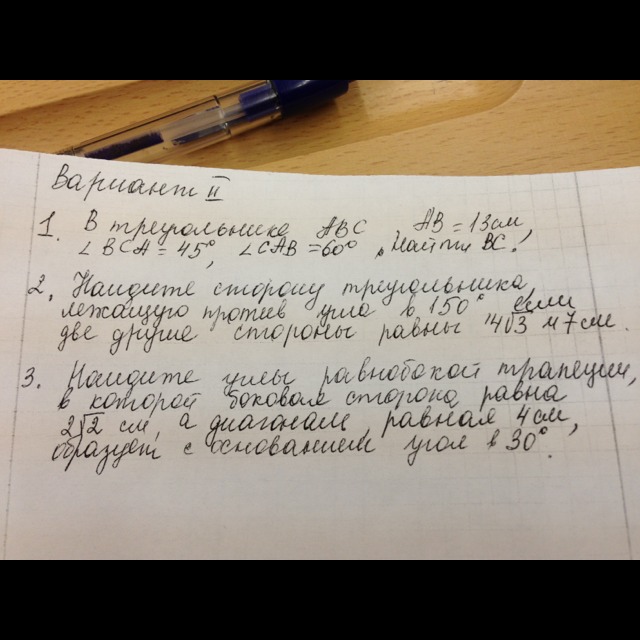 Вариант II
1. В треугольнике ABC AB = 13 см,
∠ BCA = 45°, ∠CAB = 60°, Найти BC!
2. Найдите сторону треугольника,
лежащую против угла в 150° если
две другие стороны равны 4√3 и 7 см.
3. Найдите углы равнобокой трапеции,
в которой боковая сторона равна
2√2 см, а диагональ, равная 4 см,
образует с основанием угол в 30°.